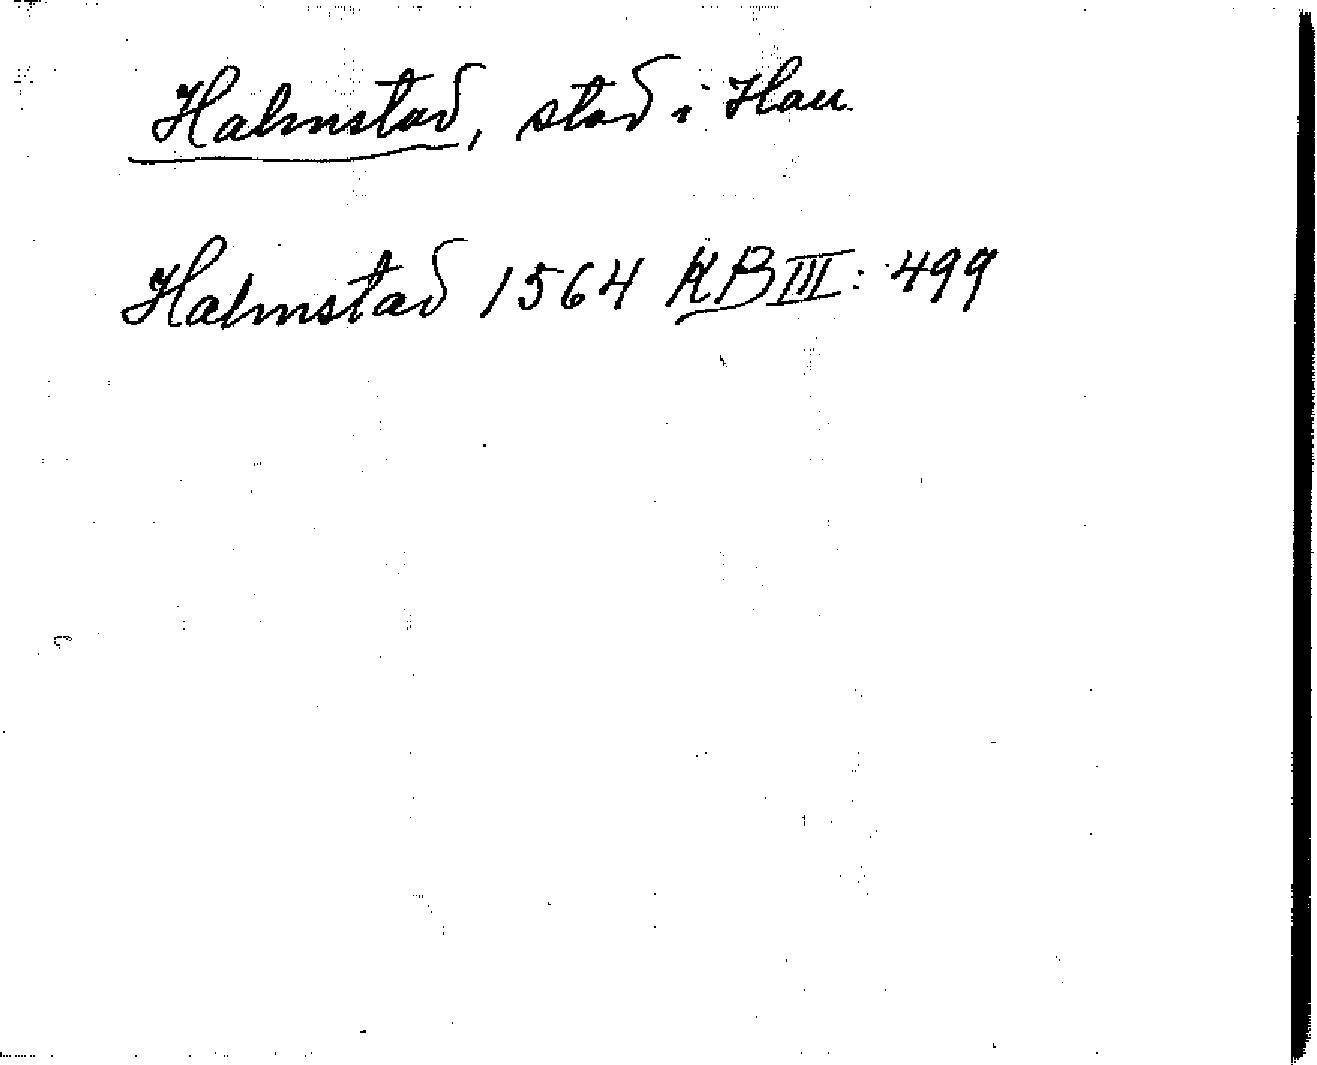 Halmstad, stad i Hall.
Halmstad 1564 KB III: 499